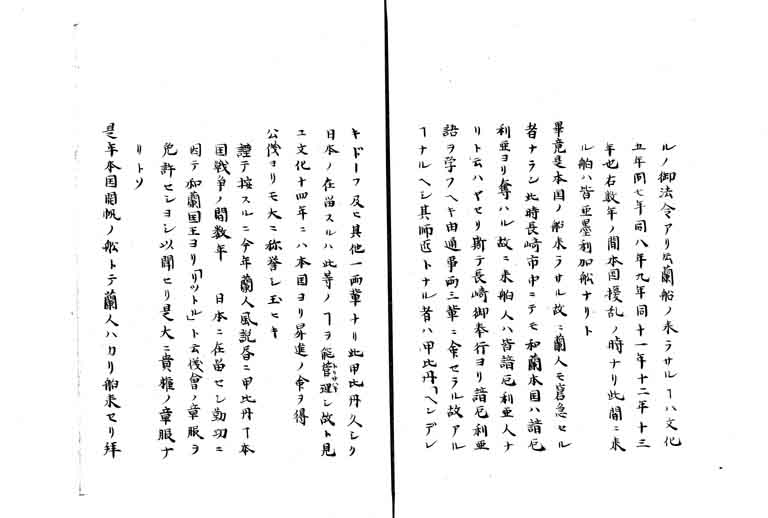 ルノ御法令アリ𪜈蘭船ノ来ラサルヿハ文化
五年同七年同八年九年同十一年十二年十三
年也右数年ノ間本国擾乱ノ時ナリ此間ニ来
ル船ハ皆亜墨利加船ナリト
畢竟是本国ノ船来ラサル故ニ蘭人モ窘急セル
者ナラン此時長崎市中ニテモ和蘭本国ハ諳厄
利亜ヨリ奪ハル故ニ来舶人ハ皆諳厄利亜人ナ
リト云ハヤセリ斯テ長崎御奉行ヨリ諳厄利亜
語ヲ学フヘキ由通事両三輩ニ命セラル故アル
ヿナルヘシ其師匠トナル者ハ甲比丹「ヘンデレ
キドーフ及ヒ其他一両輩ナリ此甲比丹久シク
日本ノ在留スルハ此等ノヿヲ能管理シ故ト見
ユ文化十四年ニハ本国ヨリ昇進ノ命ヲ得
公儀ヨリモ大ニ称誉シ玉ヒキ
謹テ按スルニ今年蘭人風説届ニ甲比丹ヿ本
国戦争ノ間数年 日本ニ在留セシ勤功ニ
因テ和蘭国王ヨリ「リットル」ト云伎會ノ章服ヲ
免許セシヨシ以聞セリ是大ニ貴権ノ章服ナ
リトソ
是年本国開帆ノ舩トテ蘭人ハカリ船来セリ拜